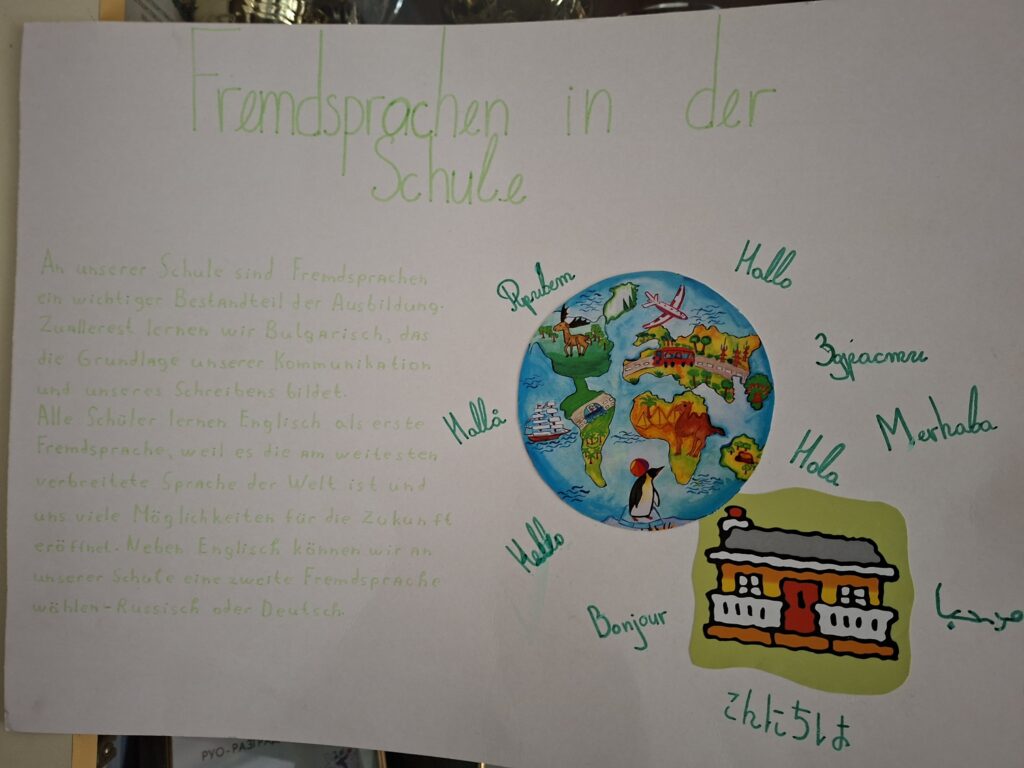 Fremdsprachen in der
Schule
An unserer Schule sind Fremdsprachen
ein wichtiger Bestandteil der Ausbildung.
Zuallerest lernen wir Bulgarisch, das
die Grundlage unserer Kommunikation
und unseres Schreibens bildet.
Alle Schüler lernen Englisch als erste
Fremdsprache, weil es die am weitesten
verbreitete Sprache der Welt ist und
uns viele Möglichkeiten für die Zukunft
eröffnet. Neben Englisch können wir an
unserer Schule eine zweite Fremdsprache
wählen-Russisch oder Deutsch.
Привет
Hallo
Здрасти
Hallå
Merhaba
Hola
Hello
Bonjour
مرحبا
こんにちは
РУО-РАЗГРАД